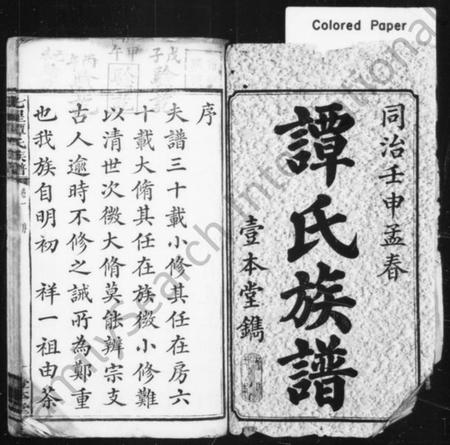 Colored Paper
同治壬申孟春
譚氏族譜
壹本堂鐫
序
夫譜三十載小修其任在房六
十載大脩其任在族微小修難
以清世次微大脩莫能辨宗支
古人逾時不修之誡所為鄭重
也我族自明初 祥一祖由茶
譚氏族譜